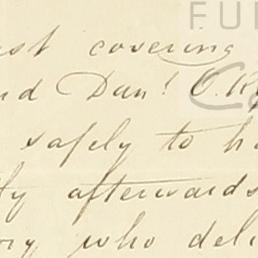 FU
ast covering
nd Danl. O. R
safely to h
ly afterwards
ory who deli